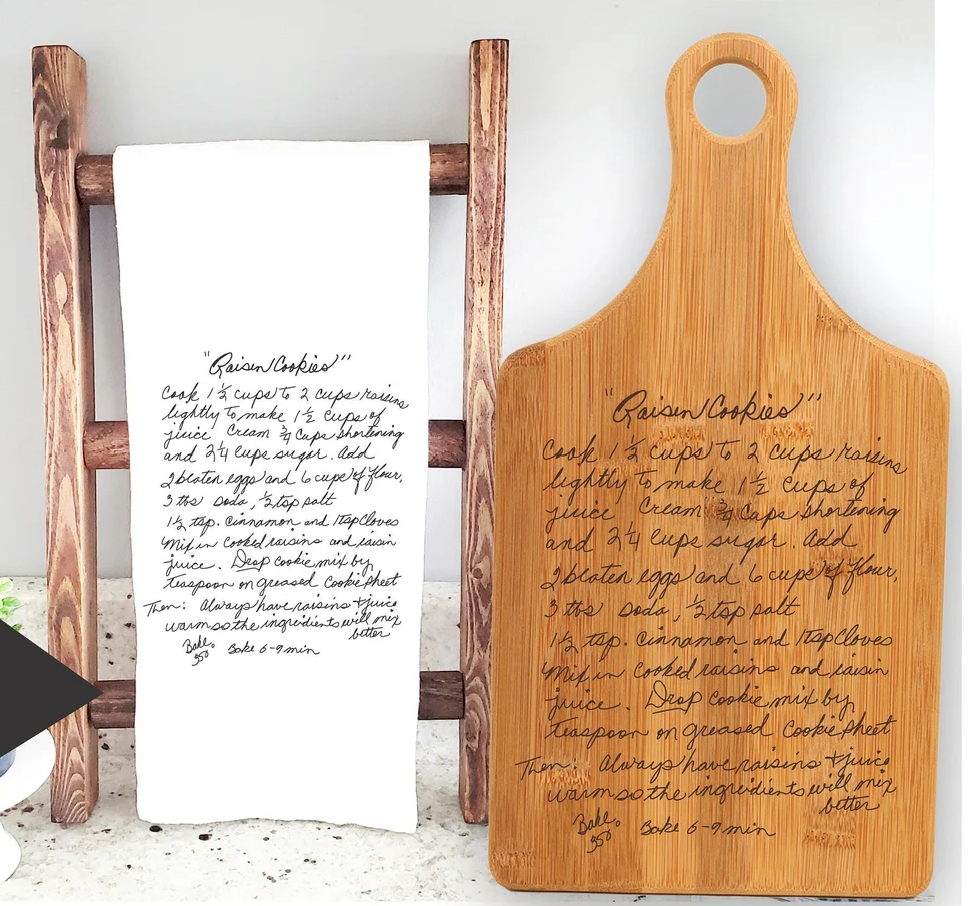 "Raisen Cookies"
Cook 1 1/2 cups to 2 cups raisins
lightly to make 1 1/2 cups of
juice Cream 3/4 Cups shortening
and 2 1/4 cups sugar. Add
2 beaten eggs and 6 cups of flour,
3 tbs soda, 1/2 tsp salt
1 1/2 tsp. cinnamon and 1tsp Cloves
Mix in cooked raisins and raisin
juice. Drop cookie mix by
teaspoon on greased Cookie sheet
Then: Always have raisins + juice
warm so the ingredients will mix
better
Bake 350 Bake 6-9 min
"Raisen Cookies"
Cook 1 1/2 cups to 2 cups raisins
lightly to make 1 1/2 cups of
juice Cream 3/4 Cups shortening
and 2 1/4 cups sugar. Add
2 beaten eggs and 6 cups of flour,
3 tbs soda, 1/2 tsp salt
1 1/2 tsp. cinnamon and 1tsp Cloves
Mix in cooked raisins and raisin
juice. Drop cookie mix by
teaspoon on greased Cookie sheet
Then: Always have raisins + juice
warm so the ingredients will mix
better
Bake 350 Bake 6-9 min